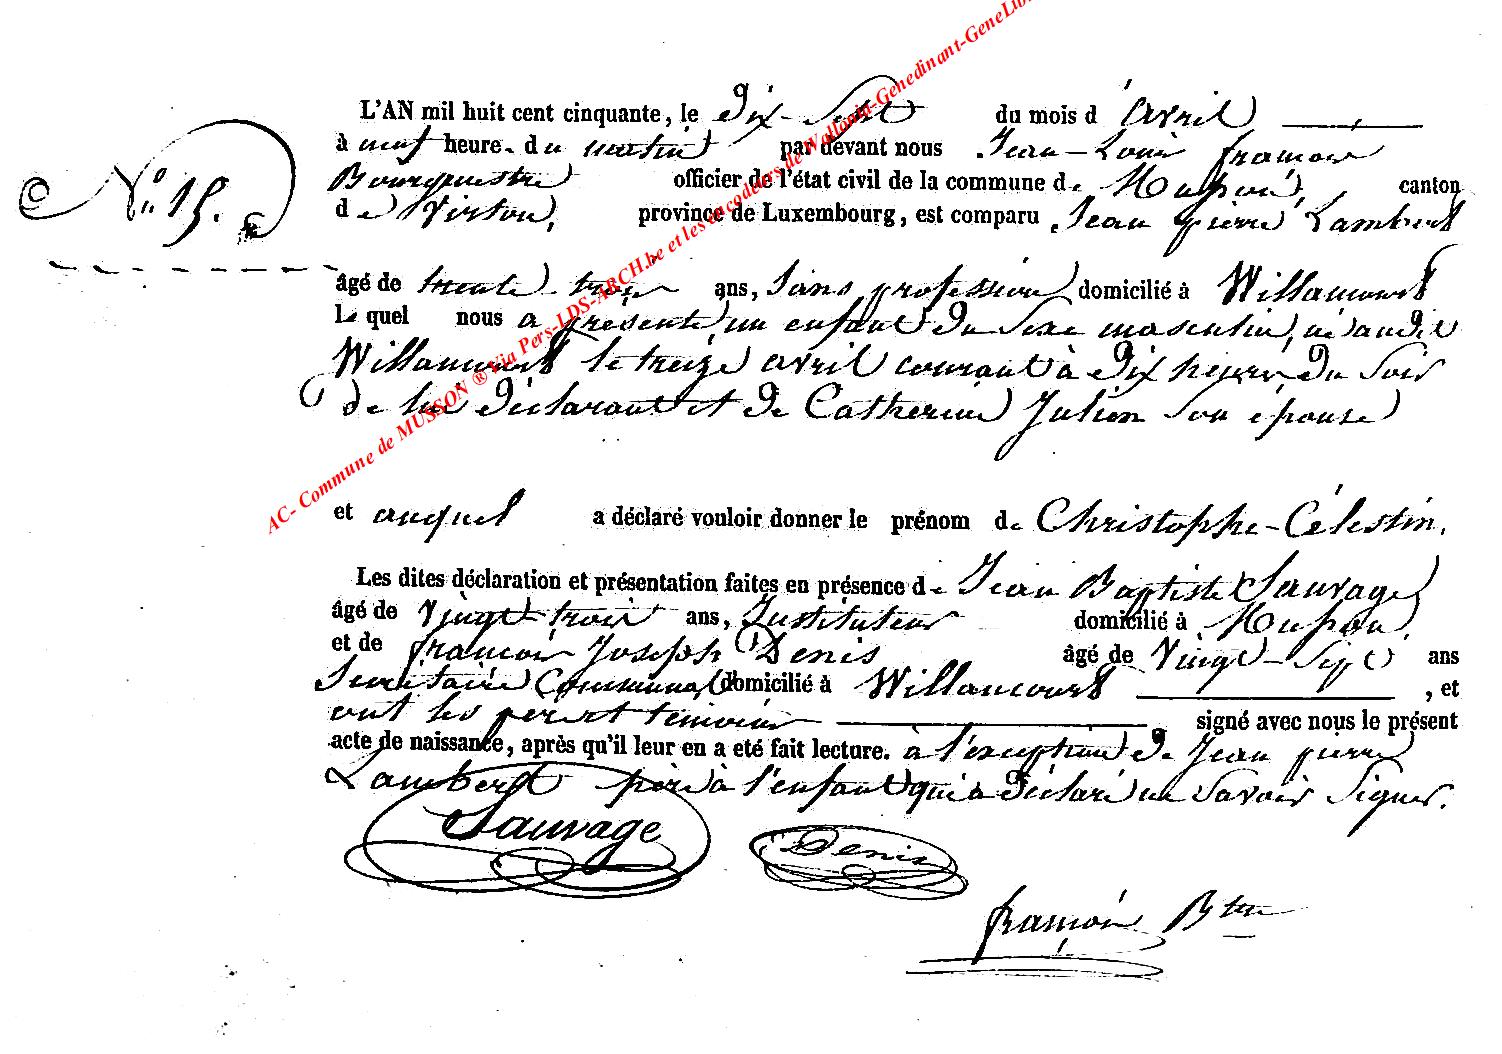 AC- Commune de MUSSON ® Via Pers-LDS-ARCH.be et les encodeurs de Wallonia-Genedinant-GeneLib
L'AN mil huit cent cinquante, le dix-sept du mois d'avril
à neuf heure. du matin par devant nous Jean-Louis françois
N° 15.
Bourgmestre officier de l'état civil de la commune de Musson, canton
de Virton, province de Luxembourg, est comparu Jean pierre Lambert
âgé de trente trois ans, sans profession domicilié à Willancourt
Le quel nous a présenté un enfant du sexe masculin, né audit
Willancourt le treize avril courant à dix heures du soir
de lui déclarant et de Catherine Julien son épouse
et auquel a déclaré vouloir donner le prénom de Christophe-Célestin.
Les dites déclaration et présentation faites en présence de Jean Baptiste Sauvage
âgé de vingt-trois ans, Instituteur domicilié à Musson,
et de françois Joseph Denis âgé de vingt-sept ans
Secrétaire Communal domicilié à Willancourt, et
ont les père et témoins signé avec nous le présent
acte de naissance, après qu'il leur en a eté fait lecture. à l'exception de Jean pierre
Lambert père à l'enfant qui a déclaré ne savoir signer.
Sauvage
Denis
françois Btre